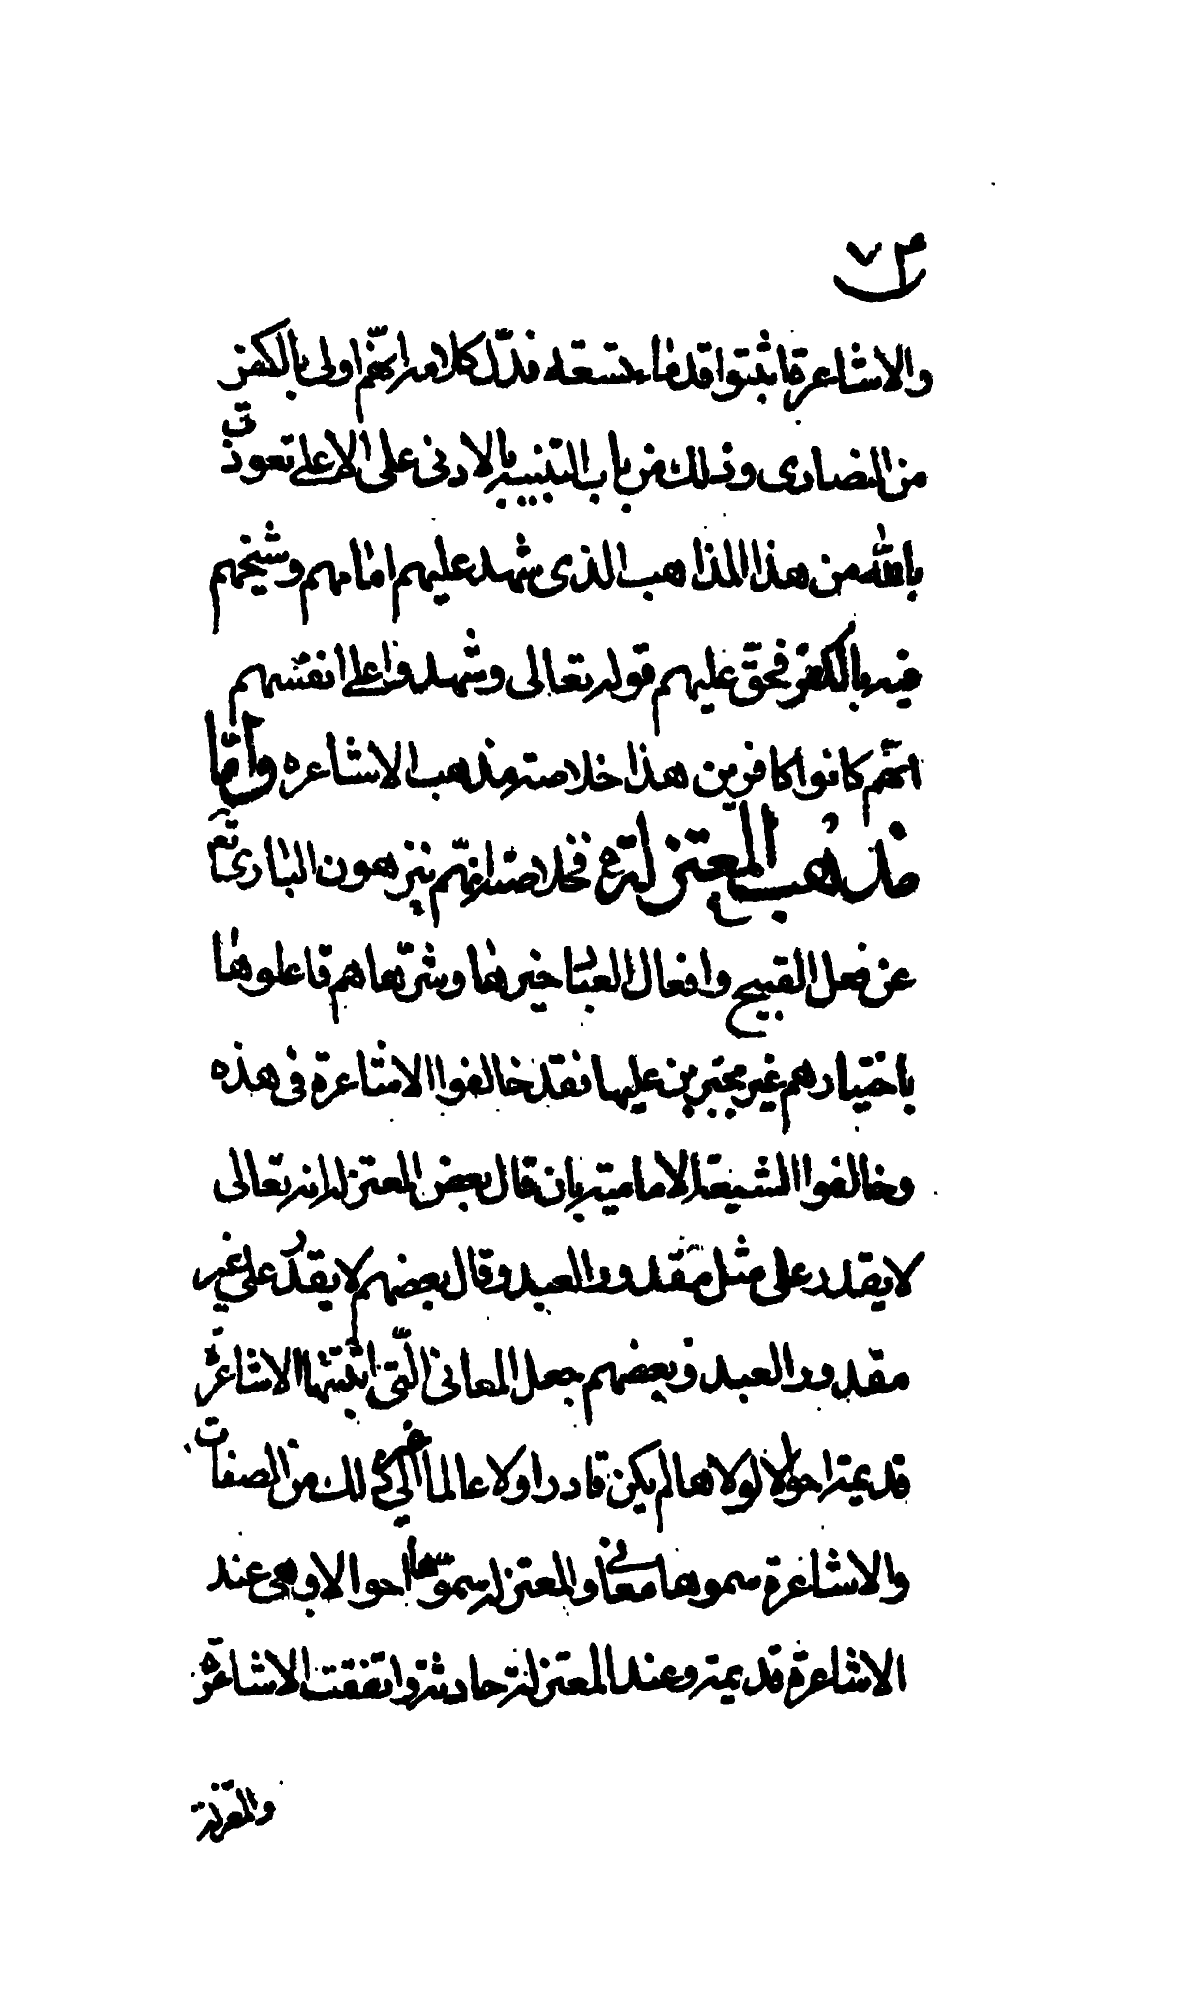 ٧٣
والاشاعرة اثبتوا قدماء تسعه فدلّ كلامه انّهم اولى بالكفر
من النصارى وذلك من باب التنبيه بالادنى على الاعلى نعوذ
بالله من هذا المذاهب الذى شهد عليهم امامهم وشيخهم
فيه بالكفر فحقّ عليهم قوله تعالى وشهدوا على انفسهم
انّهم كانوا كافرين هذا خلاصته مذهب الاشاعره وامّا
مذهب المعتزلة فخلاصته انّهم ينزهون البارى تع
عن فعل القبيح وافعال العباد خيرها وشرّها هم فاعلوها
باختيارهم غير مجبرين عليها فقد خالفوا الاشاعرة فى هذه
وخالفوا الشيعة الامامية بان قال بعض المعتزله انه تعالى
لا يقدر على مثل مقدور العبد وقال بعضهم لا يقدر على غير
مقدور العبد وبعضهم جعل المعانى الّتى اثبتها الاشاعرة
قديمة احوالا لولاها لم يكن قادرا ولا عالما الى غير ذلك من الصفات
والاشاعرة سموها معانى والمعتزله سمّوها احوالا وهى عند
الاشاعرة قديمة وعند المعتزلة حادثة واتفقت الاشاعرة
والمعتزلة